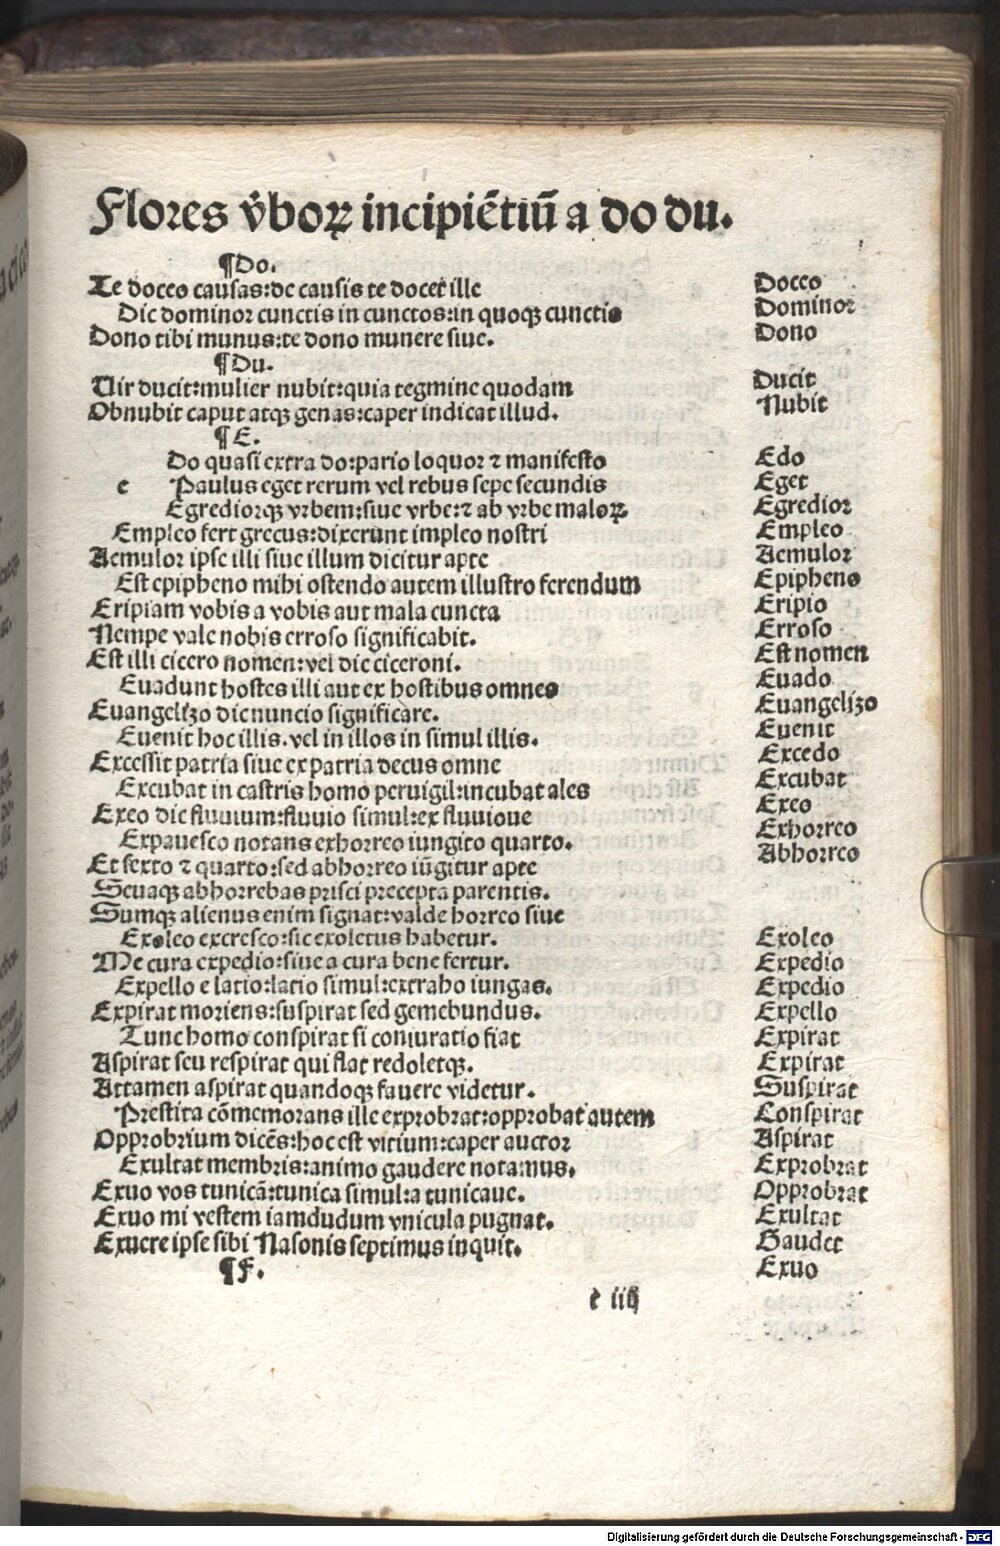 Flores v̇boꝝ incipiētiū a do du.
¶Do.
Te doceo causas:de causis te docet ille
Dic dominor cunctis in cunctos:in quoqꝫ cunctis
Dono tibi munus:te dono munere siue.
¶Du.
Uir ducit:mulier nubit:quia tegmine quodam
Obnubit caput atqꝫ genas:caper indicat illud.
¶E.
Do quasi extra do:pario loquor ⁊ manifesto
e Paulus eget rerum vel rebus sepe secundis
Egrediorqꝫ vrbem:siue vrbe:⁊ ab vrbe maloꝝ
Empleo fert grecus:dixerunt impleo nostri
Aemulor ipse illi siue illum dicitur apte
Est epipheno mihi ostendo autem illustro ferendum
Eripiam vobis a vobis aut mala cuncta
Nempe vale nobis erroso significabit.
Est illi cicero nomen:vel dic ciceroni.
Euadunt hostes illi aut ex hostibus omnes
Euangelizo dic nuncio significare.
Euenit hoc illis.vel in illos in simul illis.
Excessit patria siue ex patria decus omne
Excubat in castris homo peruigil:incubat ales
Exeo dic fluuium:fluuio simul:ex fluuioue
Expauesco notans exhorreo iungito quarto.
Et sexto ⁊ quarto:sed abhorreo iūgitur apte
Seuaqꝫ abhorrebas prisci precepta parentis.
Sumqꝫ alienus enim signat:valde horreo siue
Exoleo excresco:sic exoletus habetur.
Me cura expedio:siue a cura bene fertur.
Expello e latio:latio simul:extraho iungas.
Expirat moriens:suspirat sed gemebundus.
Tunc homo conspirat si coniuratio fiat
Aspirat seu respirat qui flat redoletqꝫ.
Attamen aspirat quandoqꝫ fauere videtur.
Prestita cōmemorans ille exprobrat:opprobat autem
Opprobrium dicēs:hoc est vitium:caper auctor
Exultat membris:animo gaudere notamus.
Exuo vos tunicā:tunica simul:a tunicaue.
Exuo mi vestem iamdudum vnicula pugnat.
Exuere ipse sibi Nasonis septimus inquit.
¶F.
e iiij
Doceo
Dominor
Dono
Ducit
Nubit
Edo
Eget
Egredior
Empleo
Aemulor
Epipheno
Eripio
Erroso
Est nomen
Euado
Euangelizo
Euenit
Excedo
Excubat
Exeo
Exhorreo
Abhorreo
Exoleo
Expedio
Expedio
Expello
Expirat
Expirat
Suspirat
Conspirat
Aspirat
Exprobrat
Opprobrat
Exultat
Gaudet
Exuo
Digitalisierung gefördert durch die Deutsche Forschungsgemeinschaft - DFG